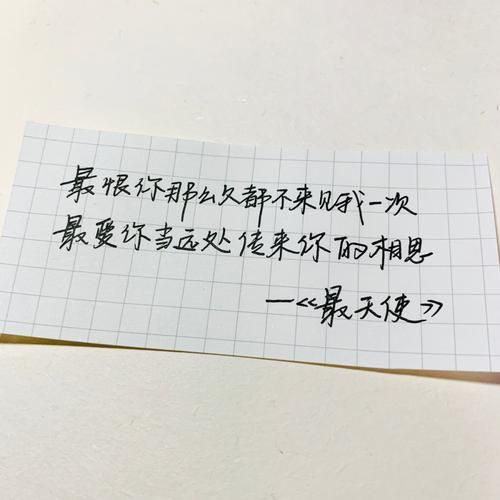 最恨你那么久都不来见我一次
最爱你当远处传来你的相思
—《最天使》